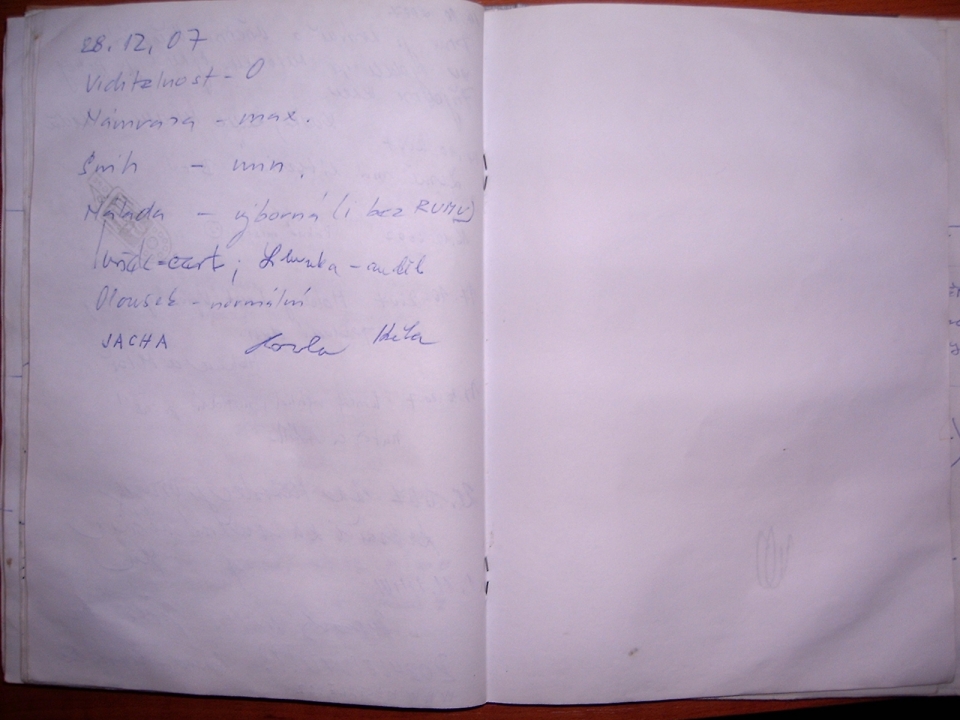 28. 12, 07
Viditelnost - 0
Námraza - max.
Sníh - min.
Nálada - výborná (i bez RUMU)
čert; - anděl
Olousek - normální
JACHA